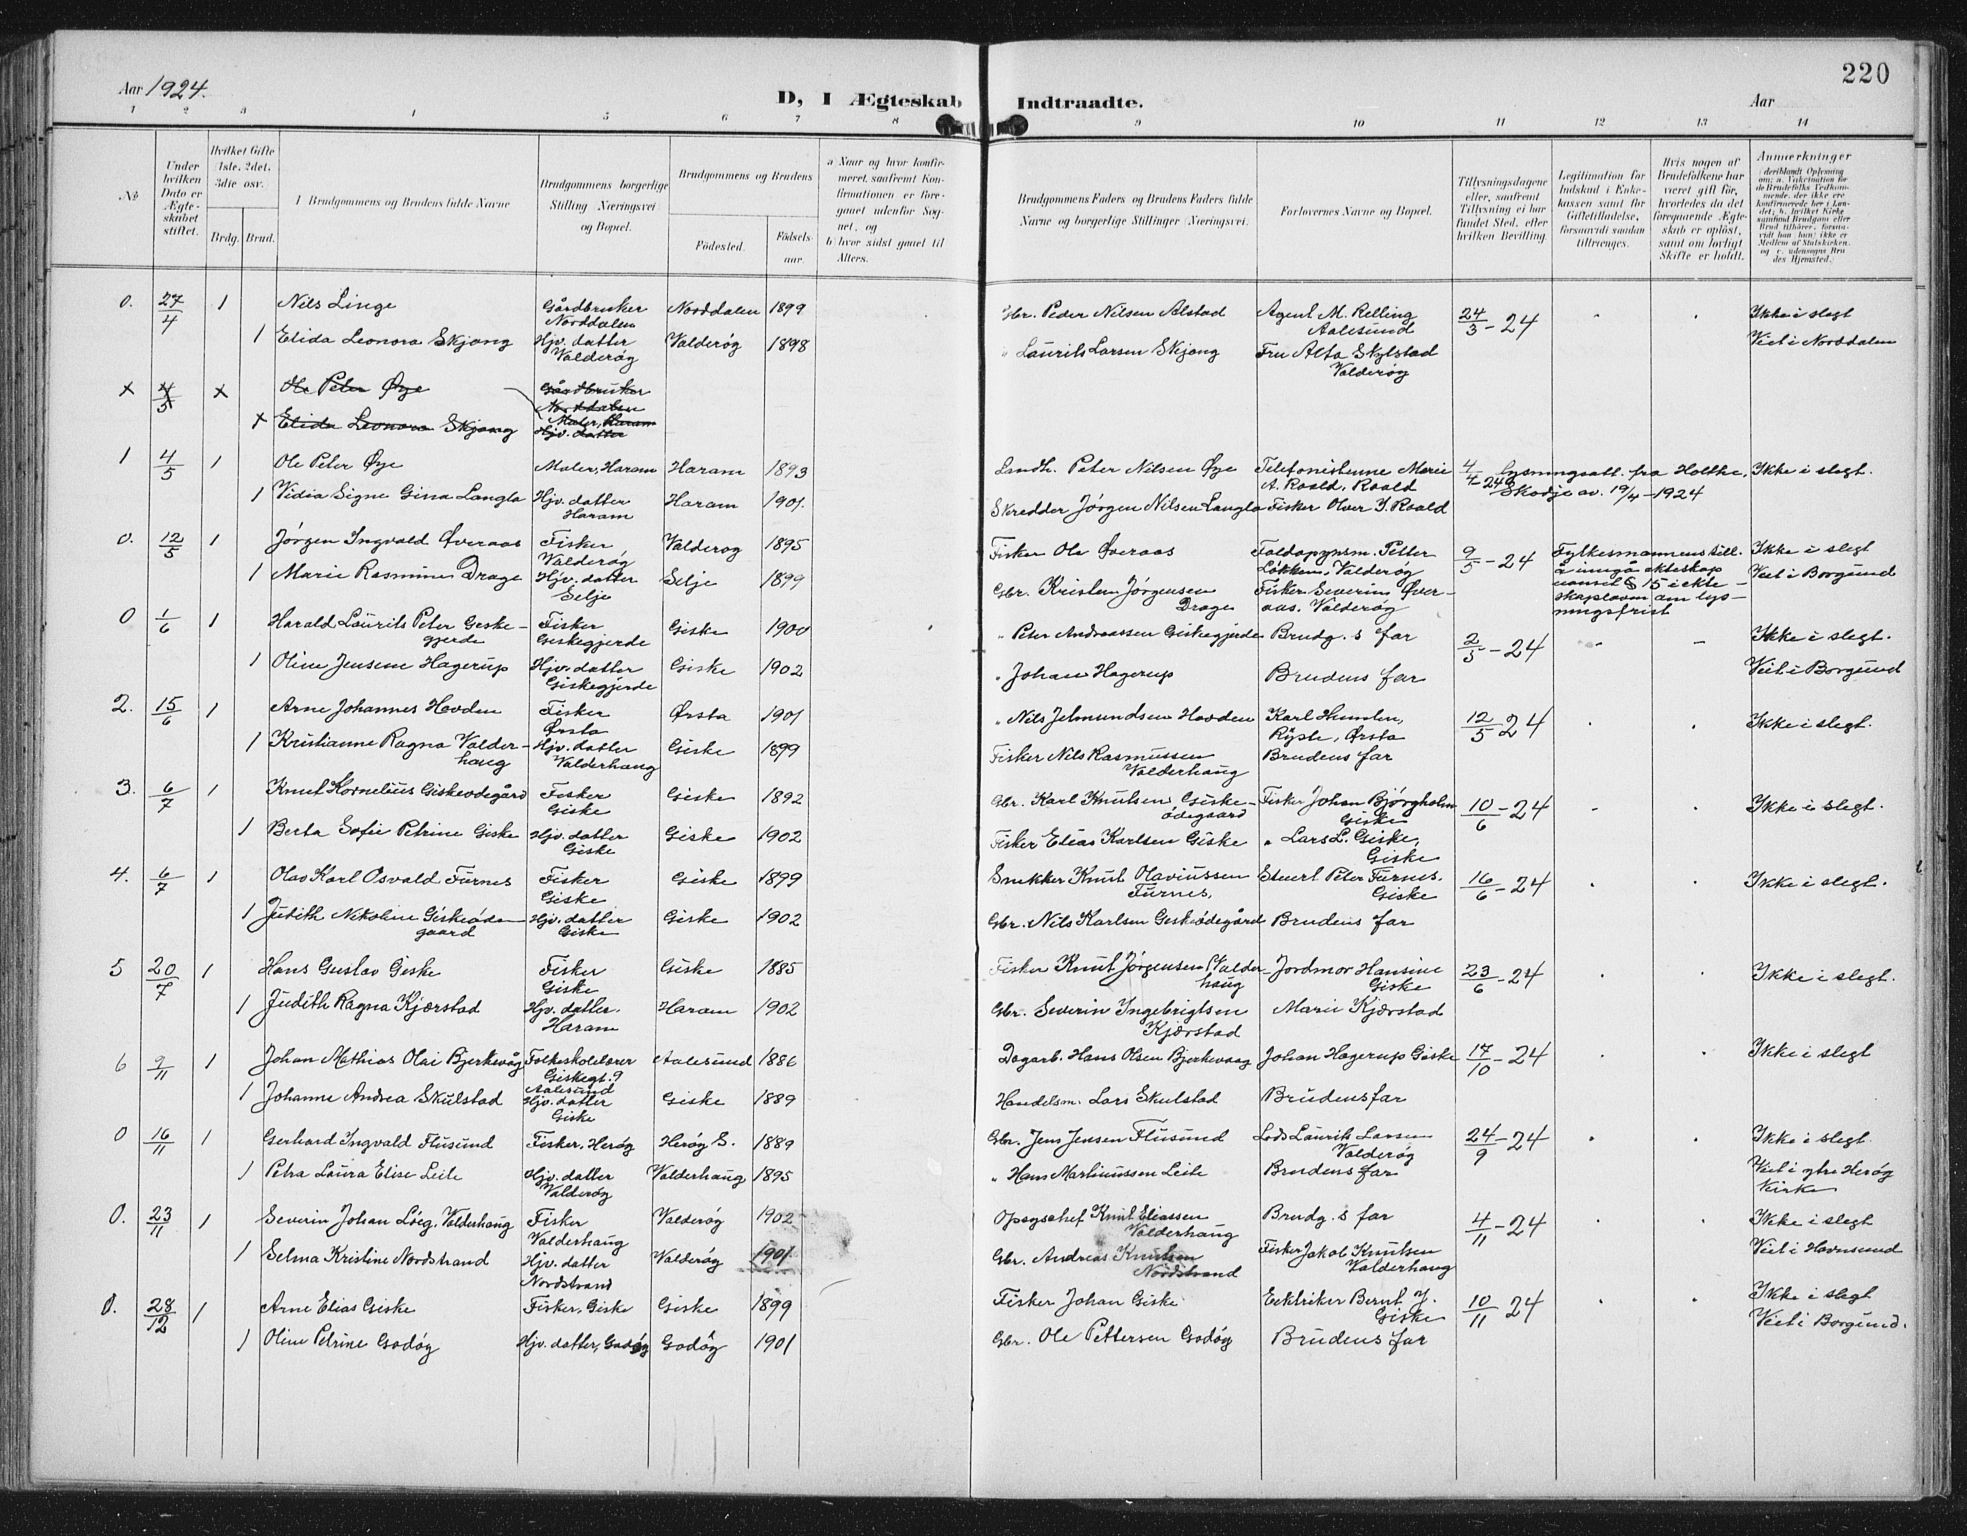 220
Aar 1924.
D, I Ægteskab Indtraadte.
Aar
1 2 3 4 5 6 7 8 9 10 11 12 13 14
No
Under hvilken Dato er Ægteskabet stiftet.
Hvilket Gifte 1ste, 2det, 3die osv.
Brdg. Brud.
Brudgommens og Brudens fulde Navne
Brudgommens borgerlige Stilling (Næringsvei) og Bopæl.
Brudgommens og Brudens
Födested.
Födselsaar.
a Naar og hvor konfirmeret, saafremt Konfirmationen er foregaaet udenfor Sognet, og
b hvor sidst gaaet til Alters.
Brudgommens Faders og Brudens Faders fulde Navne og borgerlige Stillinger (Næringsvei).
Forlovernes Navne og Bopæl.
Tillysningsdagene eller, saafremt Tillysning ei har fundet Sted, efter hvilken Bevilling.
Legitimation for Indskud i Enkekassen samt for Giftetilladelse, forsaavidt saadan tiltrænges.
Hvis nogen af Brudefolkene har været gift før, hvorledes da det foregaaende Ægteskab er opløst, samt om lovligt Skifte er holdt.
Anmærkninger
0. 27/4 1 Nils Linge Gårdbruker Norddalen Norddalen 1899 Gbr. Peder Nilsen Alstad Agent M. Relling Aalesund 24/3-24 Ikke i slegt
1 Elida Leonora Skjong Hjv. datter Valderøy Valderøy 1898 " Laurits Larsen Skjong Fru Alta Skylstad Valderøy Viet i Norddalen
x 4/5 x Ole Peter Øye Gårdbruker Norddalen
Maler, Haram
x Elida Leonora Skjong Hjv. datter
1 4/5 1 Ole Peter Øye Maler, Haram Haram 1893 Landh. Peter Nilsen Øye Telefonistinne Marie A. Roald, Roald 4/4-24 lysningsatt. fra Skodje av. 19/4-1924 Ikke i slegt.
1 Vidia Signe Gina Langlo Hjv. datter Haram Haram 1901. Skredder Jørgen Nilsen Langlo Fisker Olver J. Roald
0. 12/5 1 Jørgen Ingvald Øveraas Fisker Valderøy Valderøy 1895 Fisker Ole Øveraas Petter Løkken, Valderøy 9/5-24 Fylkesmannens till. å inngå ekteskap uansett § 15 i ekteskapsloven om lysningsfrist Ikke i slegt
1 Marie Rasmine Drage Hjv. datter Selje Selje 1899 Gbr. Kristen Jørgensen Drage Fisker Severin Øveraas. Valderøy Viet i Borgund
0 1/6 1 Harald Laurits Peter Geskegjerde Fisker Giskegjerde Giske 1900 " Peter Andreassen Giskegjerde Brudg.s far 2/5-24 Ikke i slegt.
1 Oline Jensine Hagerup Hjv. datter Giskegjerde Giske 1902 " Johan Hagerup Brudens far Viet i Borgund
2. 15/6 1 Arne Johannes Hovden Fisker Ørsta Ørsta 1901 " Nils Jetmundsen Hovden Karl Humlen, Ørsta 12/5-24 Ikke i slegt.
1 Kristianne Ragna Valderhaug Hjv. datter Valderhaug Giske 1899 Fisker Nils Rasmussen Valderhaug Brudens far
3. 6/7 1 Knut Kornelius Giskeødegård Fisker Giske Giske 1892 Gbr. Karl Knutsen Giskeødegaard Fisker Johan Bjørgholm Giske 10/6-24 Ikke i slegt.
1 Berta Sofie Petrine Giske Hjv. datter Giske Giske 1902 Fisker Elias Karlsen Giske " Lars L. Giske, Giske
4. 6/7 1 Olav Karl Osvald Furnes Fisker Giske Giske 1899 Snekker Knut Olaviussen Furnes. Stuert Peter Furnes. Giske 16/6-24 Ikke i slegt.
1 Judith Nikoline Giskeødegaard Hjv. datter Giske Giske 1902 Gbr. Nils Karlsen Geskeødegård Brudens far
5 20/7 1 Hans Gustav Giske Fisker Giske Giske 1885 Fisker Knut Jørgensen Valderhaug Jordmor Hansine Giske 23/6-24 Ikke i slegt.
1 Judith Ragna Kjærstad Hjv. datter. Haram Haram 1902 Gbr. Severin Ingebrigtsen Kjærstad Marie Kjærstad
6 9/11 1 Johan Mathias Olai Bjerkevåg Folkeskolelærer Aalesund Aalesund 1886 Dagarb. Hans Olsen Bjerkevaag Johan Hagerup Giske 17/10-24 Ikke i slegt
1 Johanne Andrea Skulstad Hjv. datter Giske Giske 1889 Handelsm. Lars Skulstad Brudens far
0 16/11 1 Gerhard Ingvald Flusund Fisker, Herøy Herøy S. 1889 Gbr. Jens Jensen Flusund Lods Laurits Larsen Valderøy 24/9-24 Ikke i slegt.
1 Petra Laura Elise Leite Hjv. datter Valderøy Valderhaug 1895 " Hans Martinussen Leite Brudens far Viet i ytre Herøy Kirke
0. 23/11 1 Severin Johan Valderhaug Fisker Valderhaug Valderøy 1902 Knut Eliassen Valderhaug Brudg.s far 4/11-24 Ikke i slegt
1 Selma Kristine Nordstrand Hjv. datter Nordstrand Valderøy 1901 Gbr. Andreas Knutsen Nordstrand Fisker Jakob Knutsen Valderhaug Viet i Havnsund
0. 28/12 1 Arne Elias Giske Fisker, Giske Giske 1899 Fisker Johan Giske Eektriker Bernt J. Giske 10/11-24 Ikke i slegt
1 Oline Petrine Godøy Hjv. datter, Godøy Godøy 1901 Gbr. Ole Pettersen Godøy Brudens far Viet i Borgund.